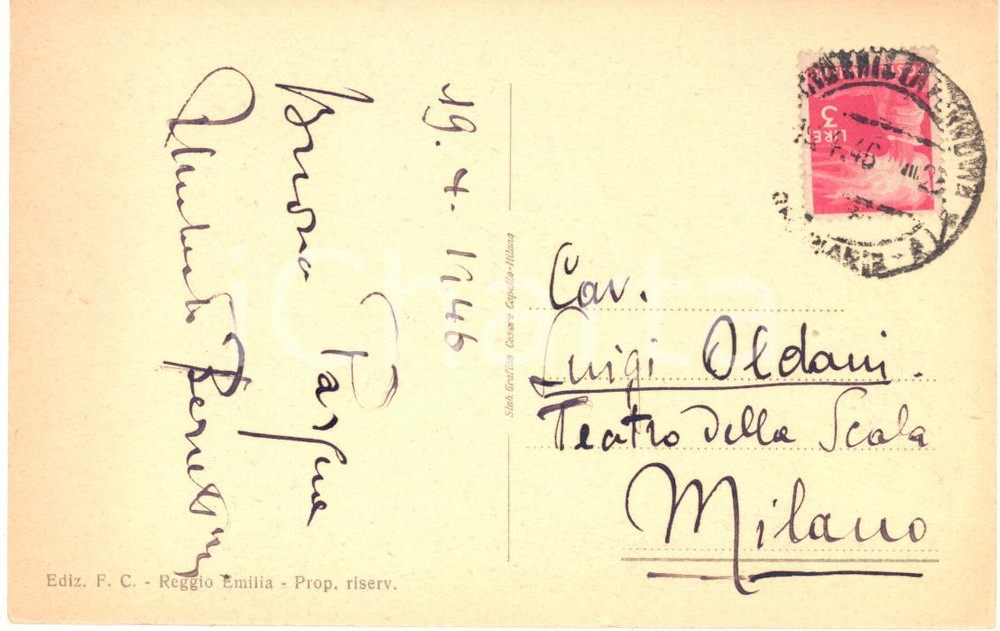 19. 4. 1946
Buona Pasqua
Umberto Berrettoni
Ediz. F. C. - Reggio Emilia - Prop. riserv.
Stab. Grafico Cesare Capello-Milano
LIRE 3
46
Cav.
Luigi Oldani.
Teatro della Scala
Milano
iCharta